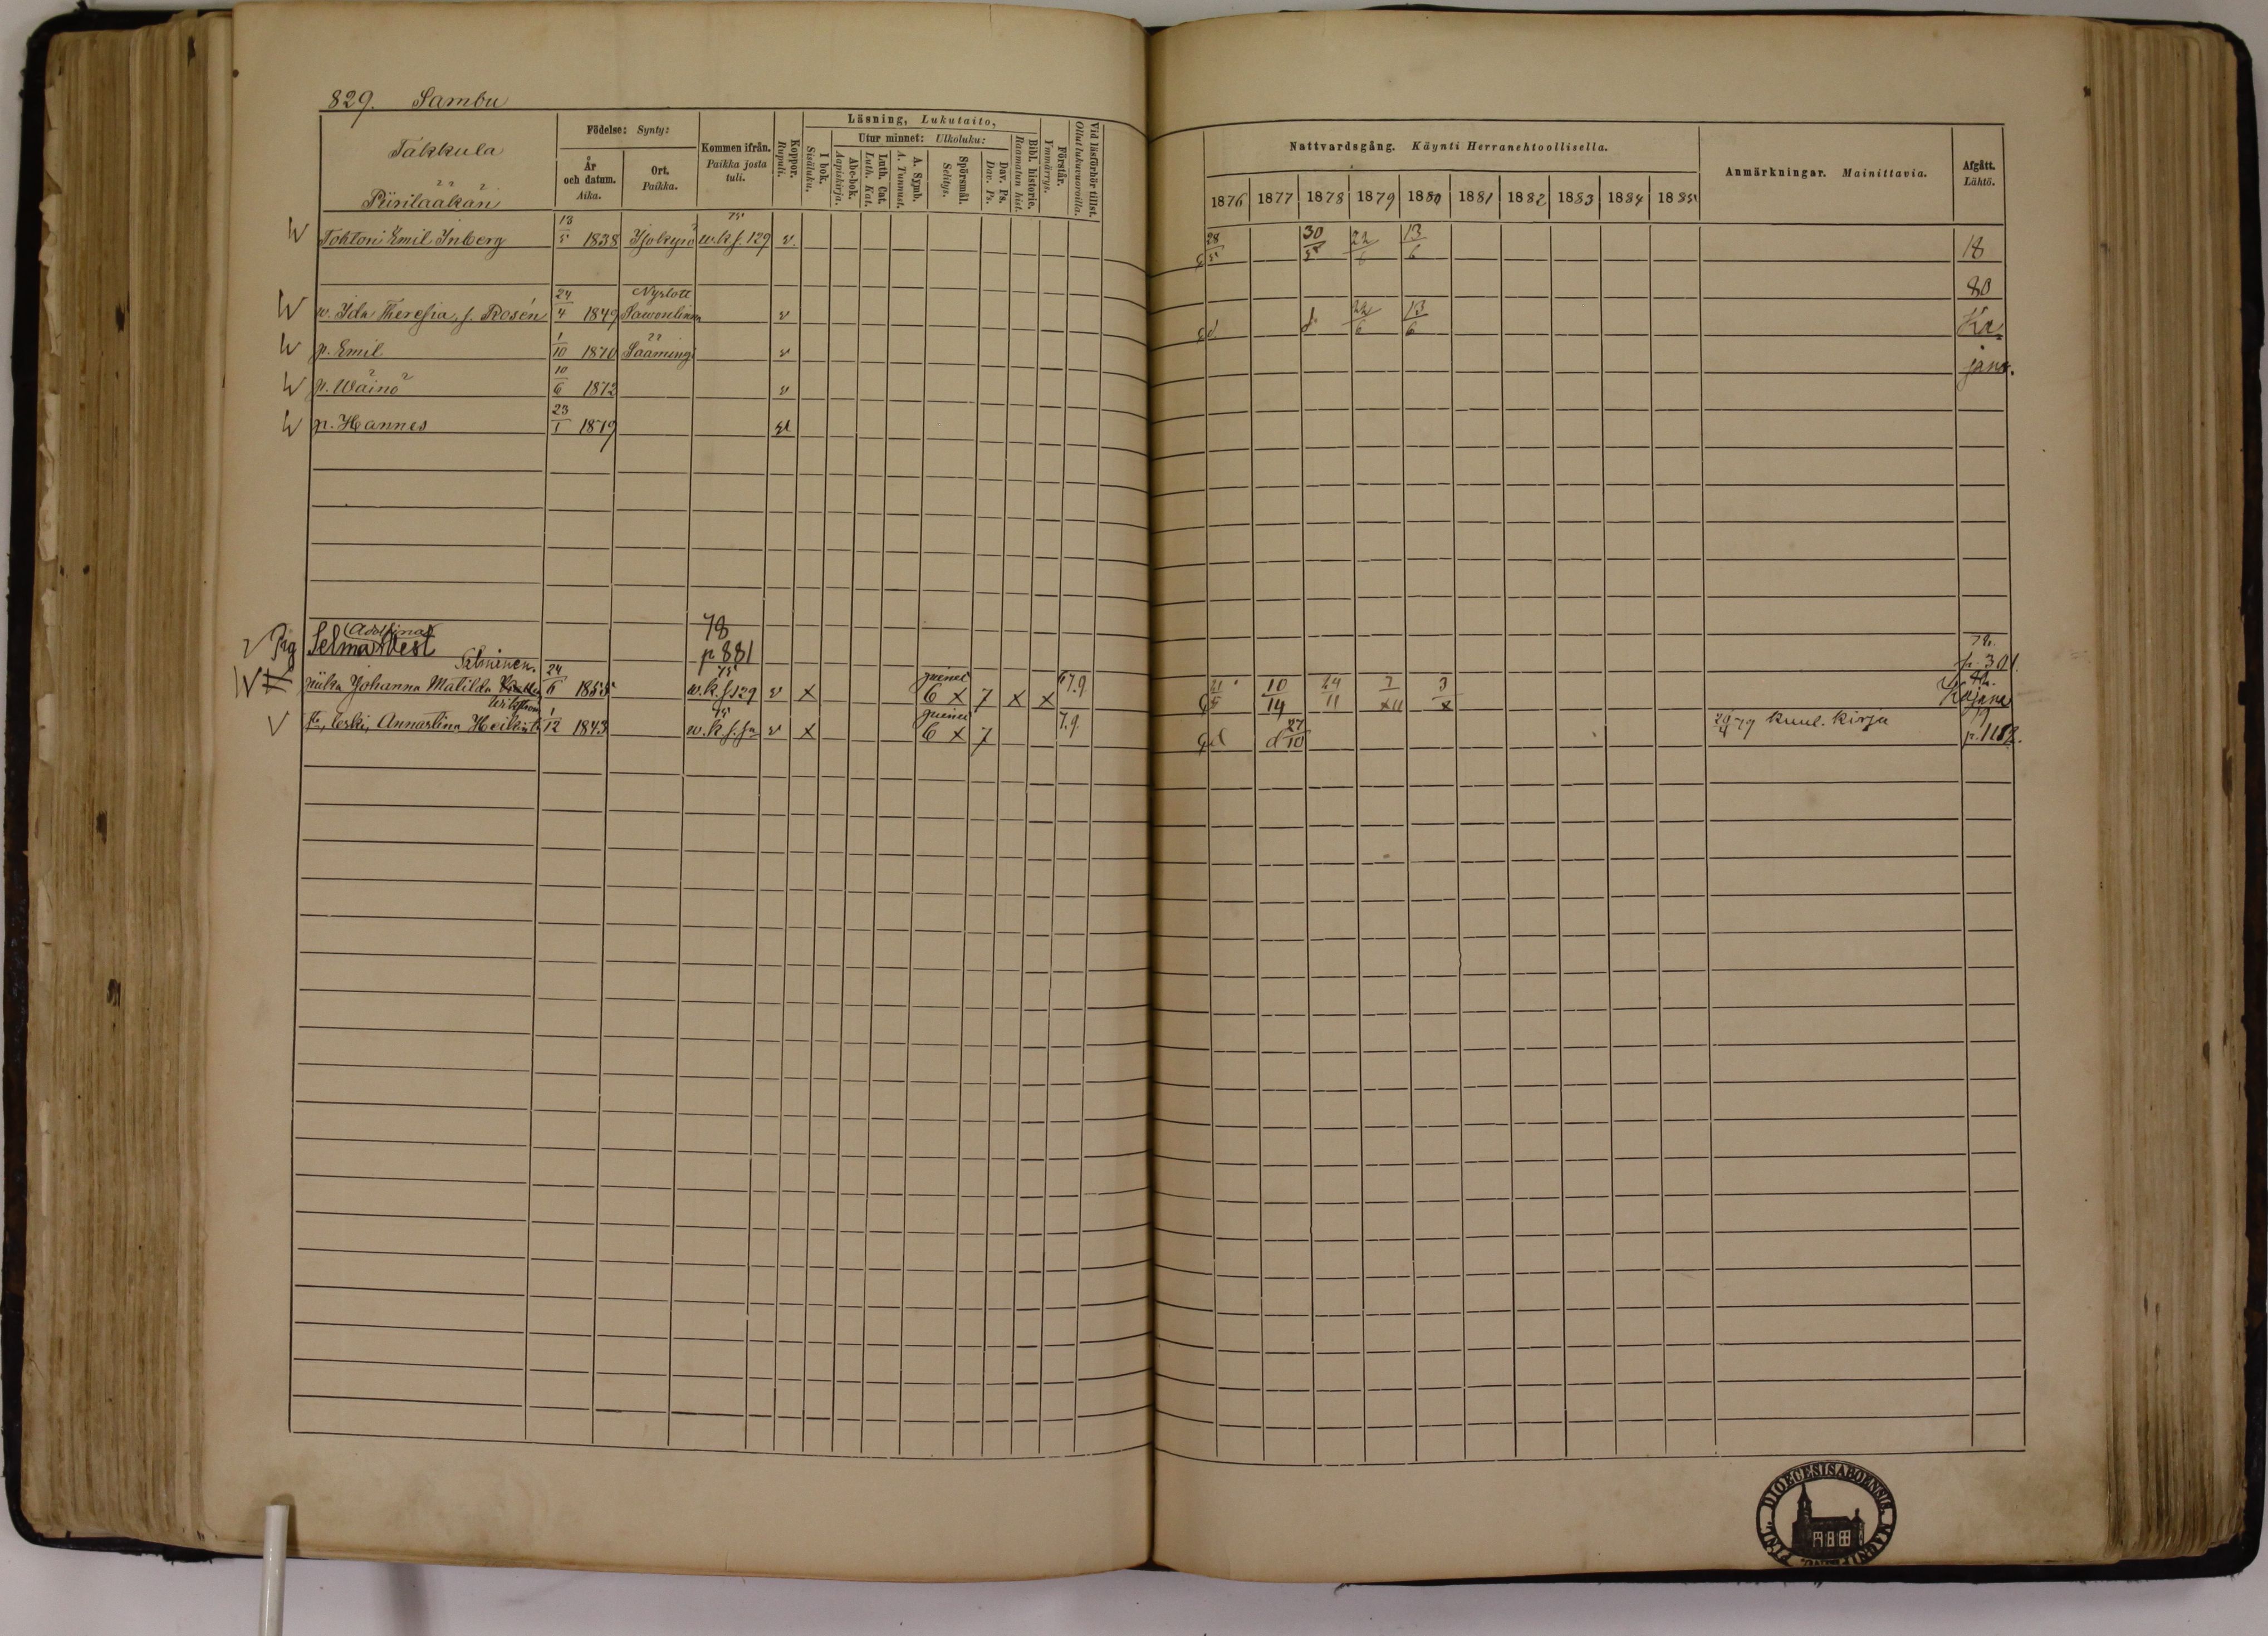 829. Sambu
Takkula
Piirilääkäri
Födelse: Synty:
År
och datum.
Aika.
Ort.
Paikka.
Kommen ifrån.
Paikka josta
tuli.
Koppor.
Rupuli.
Läsning, Lukutaito,
I bok.
Sisäluku.
Utur minnet: Ulkoluku:
Abc-bok.
Aapiskirja.
Luth. Cat.
Luth. Kat.
A. Symb.
A. Tunnust.
Spörsmål.
Selitys.
Dav. Ps.
Dav. Ps.
Bibl. historie.
Raamatun hist.
Förstår.
Ymmärrys.
Vid läsförhör tillst.
Ollut lukuvuoroilla.
Nattvardsgång. Käynti Herranehtoollisella.
1876 1877 1878 1879 1880 1881 1882 1883 1884 1885
Anmärkningar. Mainittavia.
Afgått.
Lähtö.
Tohtori Emil Inberg 13/5 1838 w.k.s. 129 v. 28/5 30/5 22/6 13/6 18
80
w. Ida Theresia, s. Rosén 24/4 1849 Nyslott Sawonlinna v 22/6 13/6 Ka
p. Emil 1/10 1870 Säämingi v jana.
p. Wäinö 10/6 1872 v
p. Hannes 23/1 1879
Selma (Adolfina) Vest 78 p 881 p. 301
Salminen.
piika Johanna Matilda 24/6 1855 75 w.k.s 129 v x 6 x 7 x x 67.9 10/14 24/11 Kajana
leski, Annastina Heikint. 1/12 1843 75 w.k.s. v x 6 x 7 7.9. 27/10 79 kuul. kirja p. 1182.
FINL. DIOECESIS ABOENSIS MAGNI DUC.